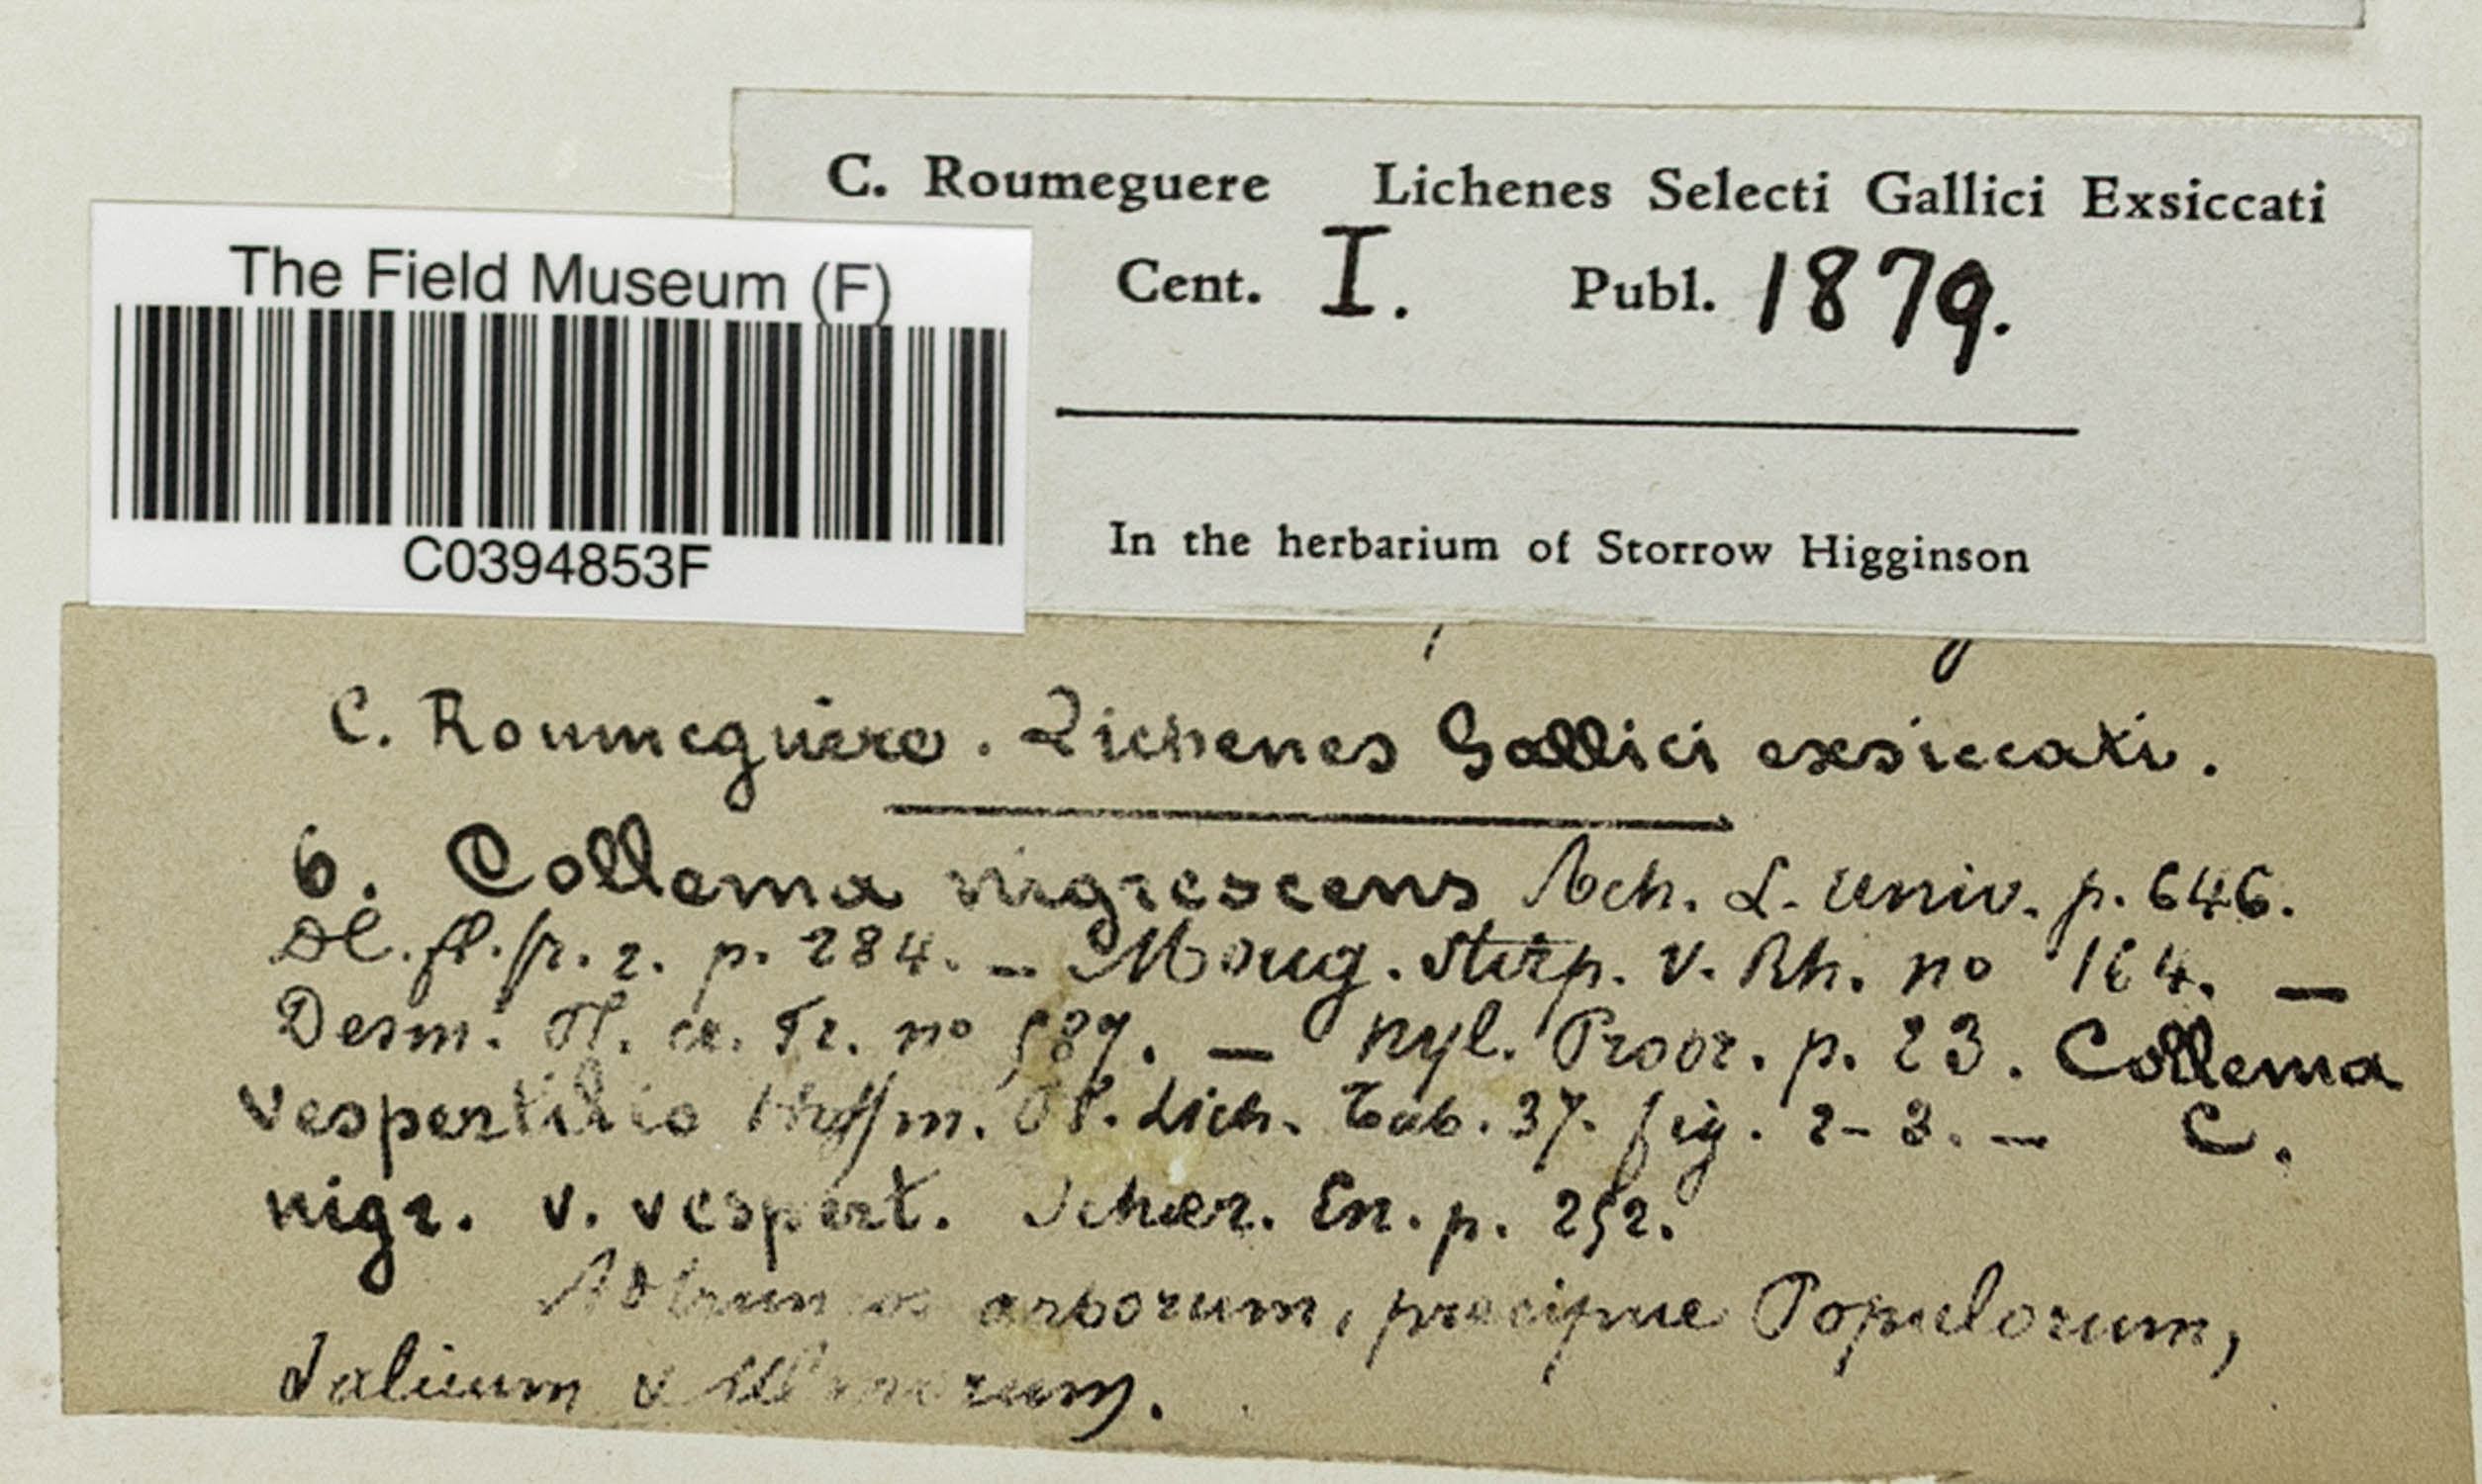 C. Roumeguere Lichenes Selecti Gallici Exsiccati
Cent. I. Publ. 1879.
In the herbarium of Storrow Higginson
The Field Museum (F)
C0394853F
C. Roumeguere. Lichenes Gallici exsiccati.
6. Collema nigrescens Ach. L. Univ. p. 646.
Dl. fl. fr. 2. p. 284. — Moug. Stirp. V. Rh. no 164. —
Desm. Pl. cr. Fr. no 589. — Nyl. Prodr. p. 23. Collema
vespertilio Hoffm. Pl. Lich. Tab. 37. fig. 2-3. — C.
nigr. v. vespert. Schær. En. p. 252.
arborum, precipue Populorum,
Salicum & Ulmorum.